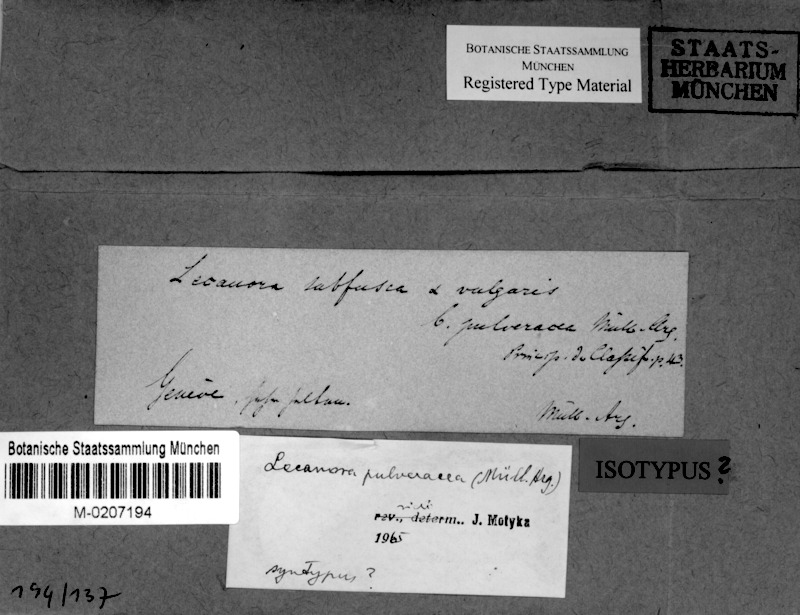 BOTANISCHE STAATSSAMMLUNG
MÜNCHEN
Registered Type Material
STAATS-
HERBARIUM
MÜNCHEN
Lecanora subfusca α vulgaris
C. pulveracea Müll. Arg.
Princip. d. Classif. p. 43.
Genève,
Müll. Arg.
Botanische Staatssammlung München
M-0207194
Lecanora pulveracea (Müll. Arg.)
vidi
rev., determ.. J. Motyka
1965
syntypus?
ISOTYPUS?
194/137